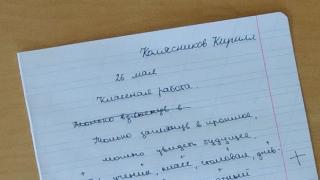 Колясников Кирилл
26 мая
Классная работа.
Только взглянув в
Только заглянув в прошлое,
можно увидеть будущее.
ученик, класс, столовая, днев-